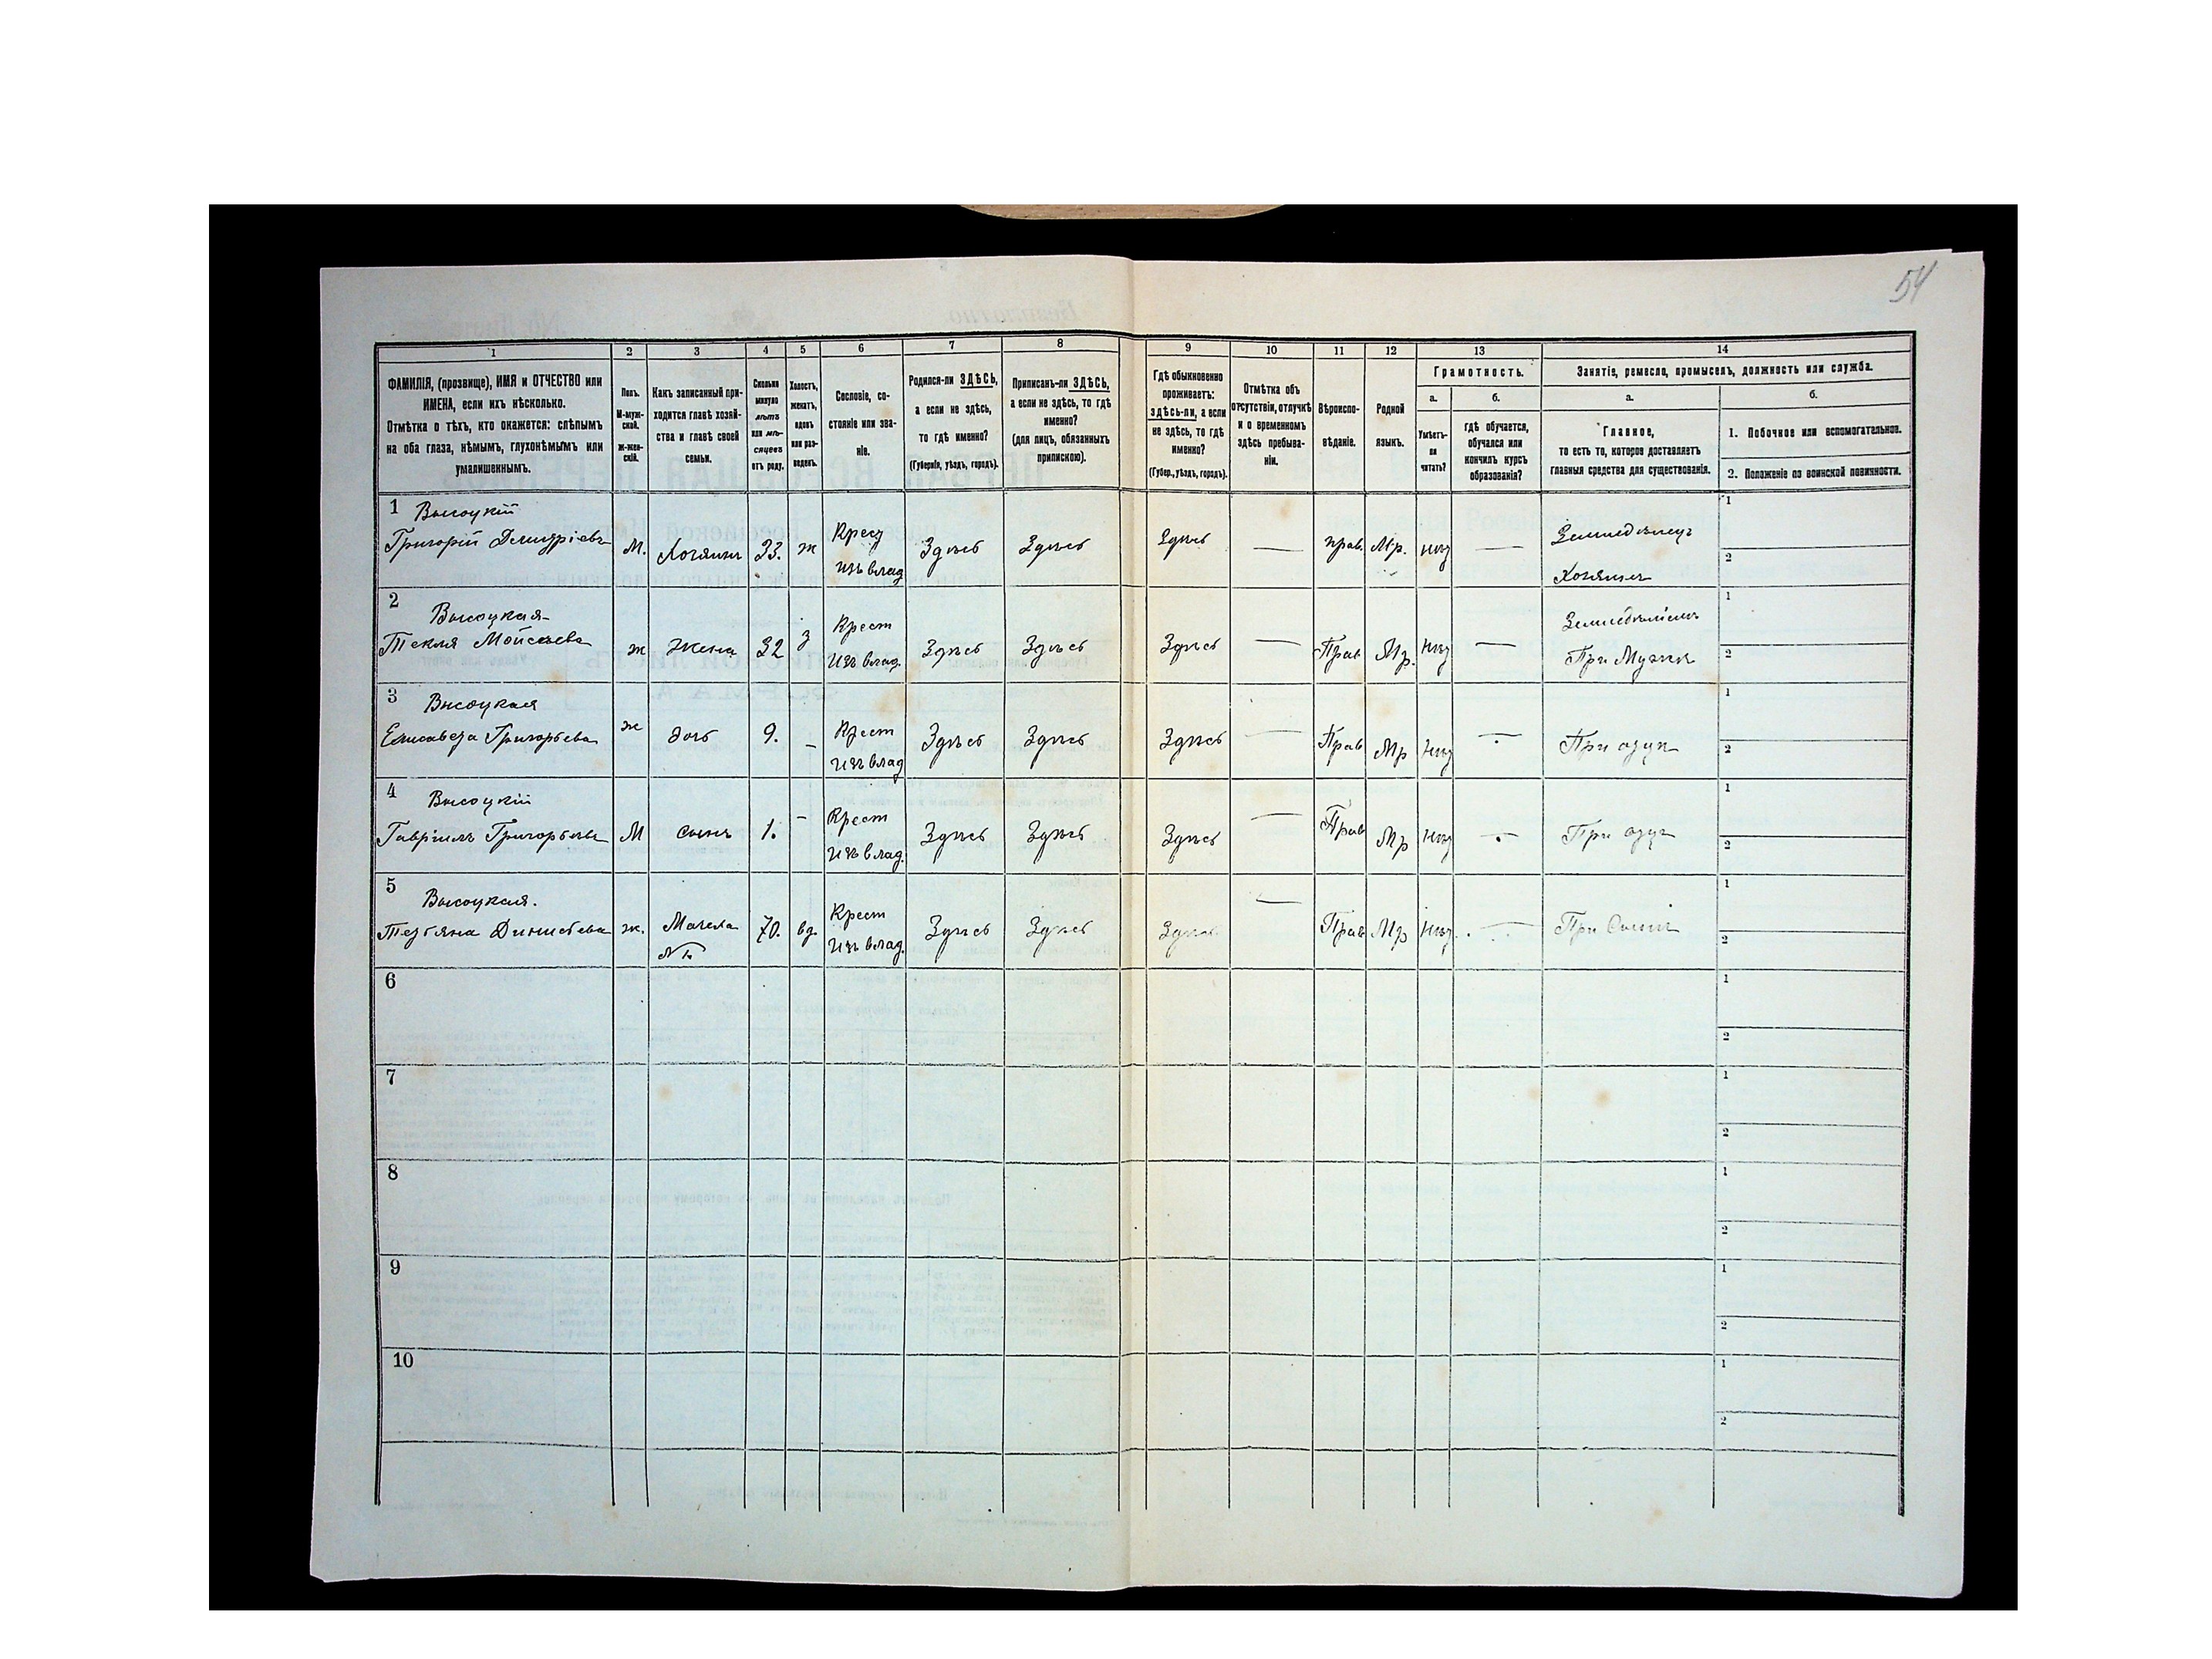 54
1 2 3 4 5 6 7 8 9 10 11 12 13 14
ФАМИЛІЯ, (прозвище), ИМЯ и ОТЧЕСТВО или
ИМЕНА, если ихъ нѣсколько.
Отмѣтка о тѣхъ, кто окажется: слѣпымъ
на оба глаза, нѣмымъ, глухонѣмымъ или
умалишеннымъ.
Полъ.
М-муж-
ской.
ж-жен-
скій.
Какъ записанный при-
ходится главѣ хозяй-
ства и главѣ своей
семьи.
Сколько
минуло
лѣтъ
или мѣ-
сяцевъ
отъ роду.
Холостъ,
женатъ,
вдовъ
или раз-
веденъ.
Сословіе, со-
стояніе или зва-
ніе.
Родился-ли ЗДѢСЬ,
а если не здѣсь,
то гдѣ именно?
(Губернія, уѣздъ, городъ).
Приписанъ-ли ЗДѢСЬ,
а если не здѣсь, то гдѣ
именно?
(для лицъ, обязанныхъ
припискою).
Гдѣ обыкновенно
проживаетъ:
здѣсь-ли, а если
не здѣсь, то гдѣ
именно?
(Губер., уѣздъ, городъ).
Отмѣтка объ
отсутствіи, отлучкѣ
и о временномъ
здѣсь пребыва-
ніи.
Вѣроиспо-
вѣданіе.
Родной
языкъ.
Грамотность.
а.
Умѣетъ-
ли
читать?
б.
гдѣ обучается,
обучался или
кончилъ курсъ
образованія?
Занятіе, ремесло, промыселъ, должность или служба.
а.
Главное,
то есть то, которое доставляетъ
главныя средства для существованія.
б.
1. Побочное или вспомогательное.
2. Положеніе по воинской повинности.
1 Высоцкій
Григорій Дмитріевъ М. Хозяинъ 33. ж Крест изъ влад Здѣсь Здѣсь Здѣсь — прав. Мр. нѣт — Земледѣлецъ
Хозяинъ
1
2
2 Высоцкая
Текля Мойсѣева ж Жена 32 з Крест Изъ влад. Здѣсь Здѣсь Здѣсь — Прав Мр. нѣт — Земледѣліемъ
При Мужѣ
1
2
3 Высоцкая
Елисавета Григорьева ж дочь 9. — Крест Изъ влад Здѣсь Здѣсь Здѣсь — Прав Мр нѣт — При отцѣ
1
2
4 Высоцкій
Гавріилъ Григорьевъ М сынъ 1. - Крест Изъ влад. Здѣсь Здѣсь Здѣсь — Прав Мр нѣт При отцѣ
1
2
5 Высоцкая.
Тетьяна Динисьева ж. Мачеха 70. вд. Крест Изъ влад. Здѣсь Здѣсь Здѣсь — Прав Мр нѣт. — При Сынѣ
№ 1.
1
2
6
1
2
7
1
2
8
1
2
9
1
2
10
1
2